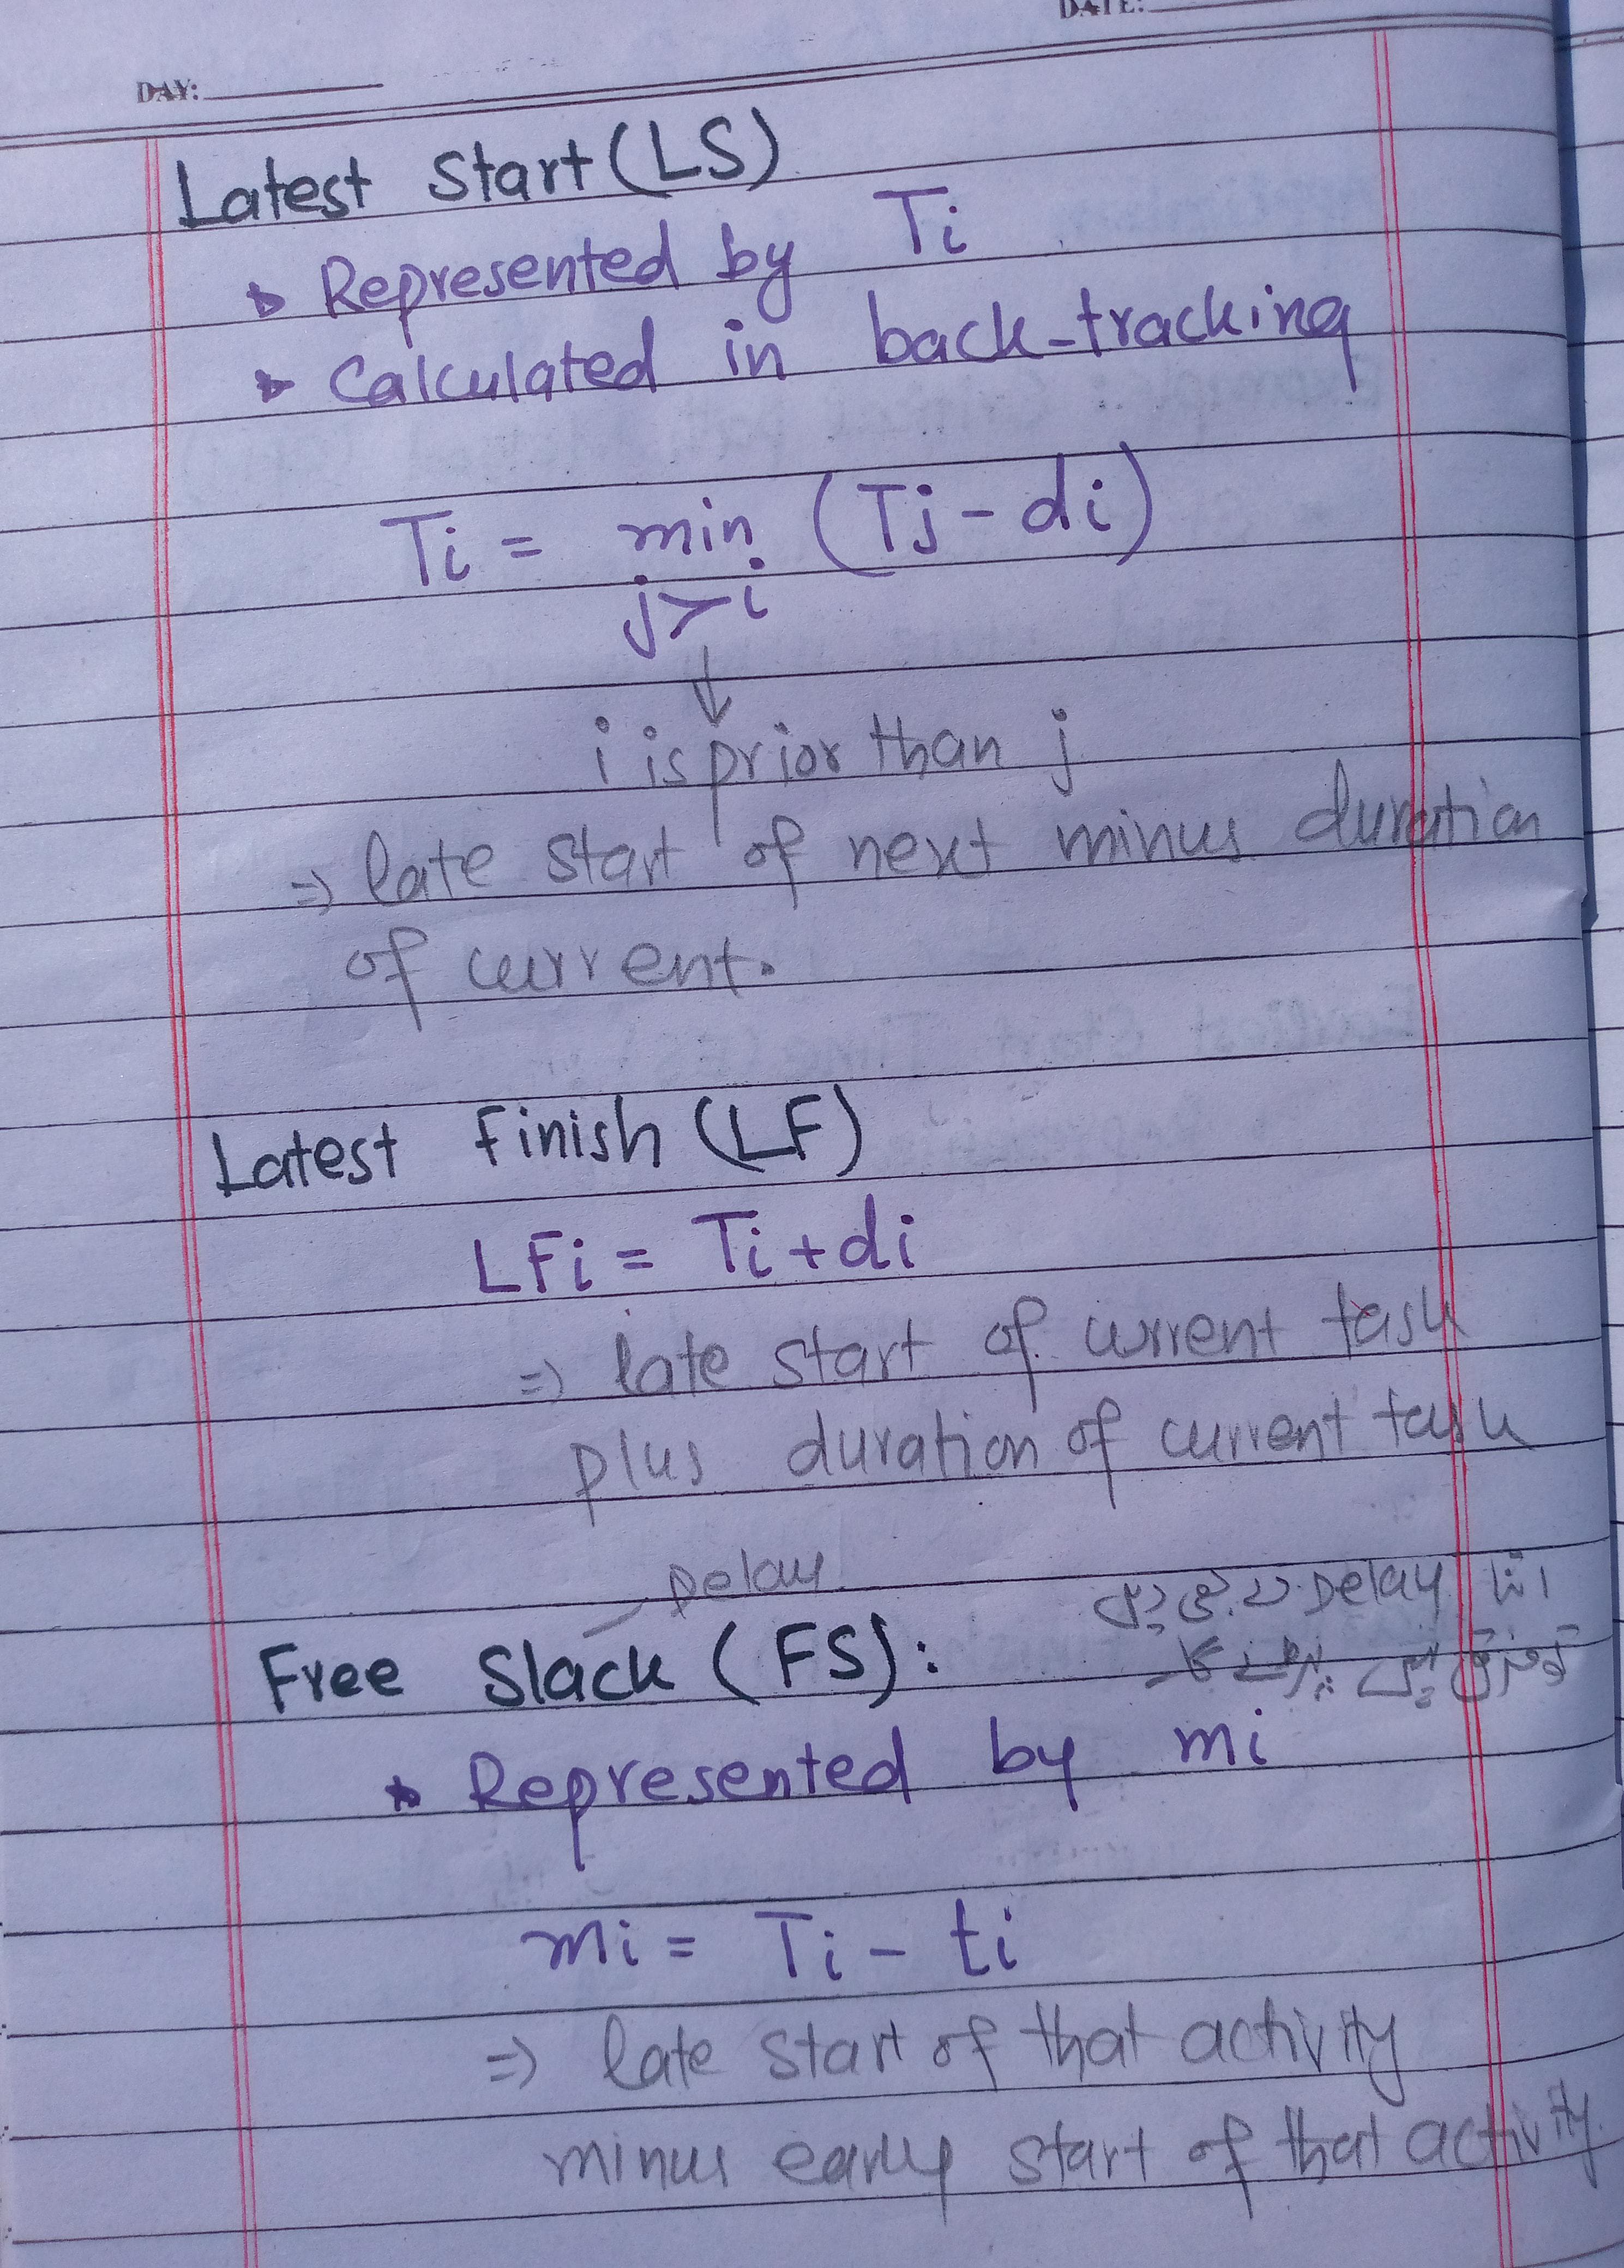 DATE:
DAY:
Latest Start (LS)
Represented by Ti
Calculated in back-tracking
Ti = min (Tj - di)
j>i
↓
i is prior than j
⇒ late start of next minus duration
of current.
Latest Finish (LF)
LFi = Ti + di
⇒ late start of current task
plus duration of current task
Delay
Free Slack (FS):
اتنا Delay
فرق نہیں پڑے گا
Represented by mi
mi = Ti - ti
⇒ late start of that activity
minus early start of that activity.